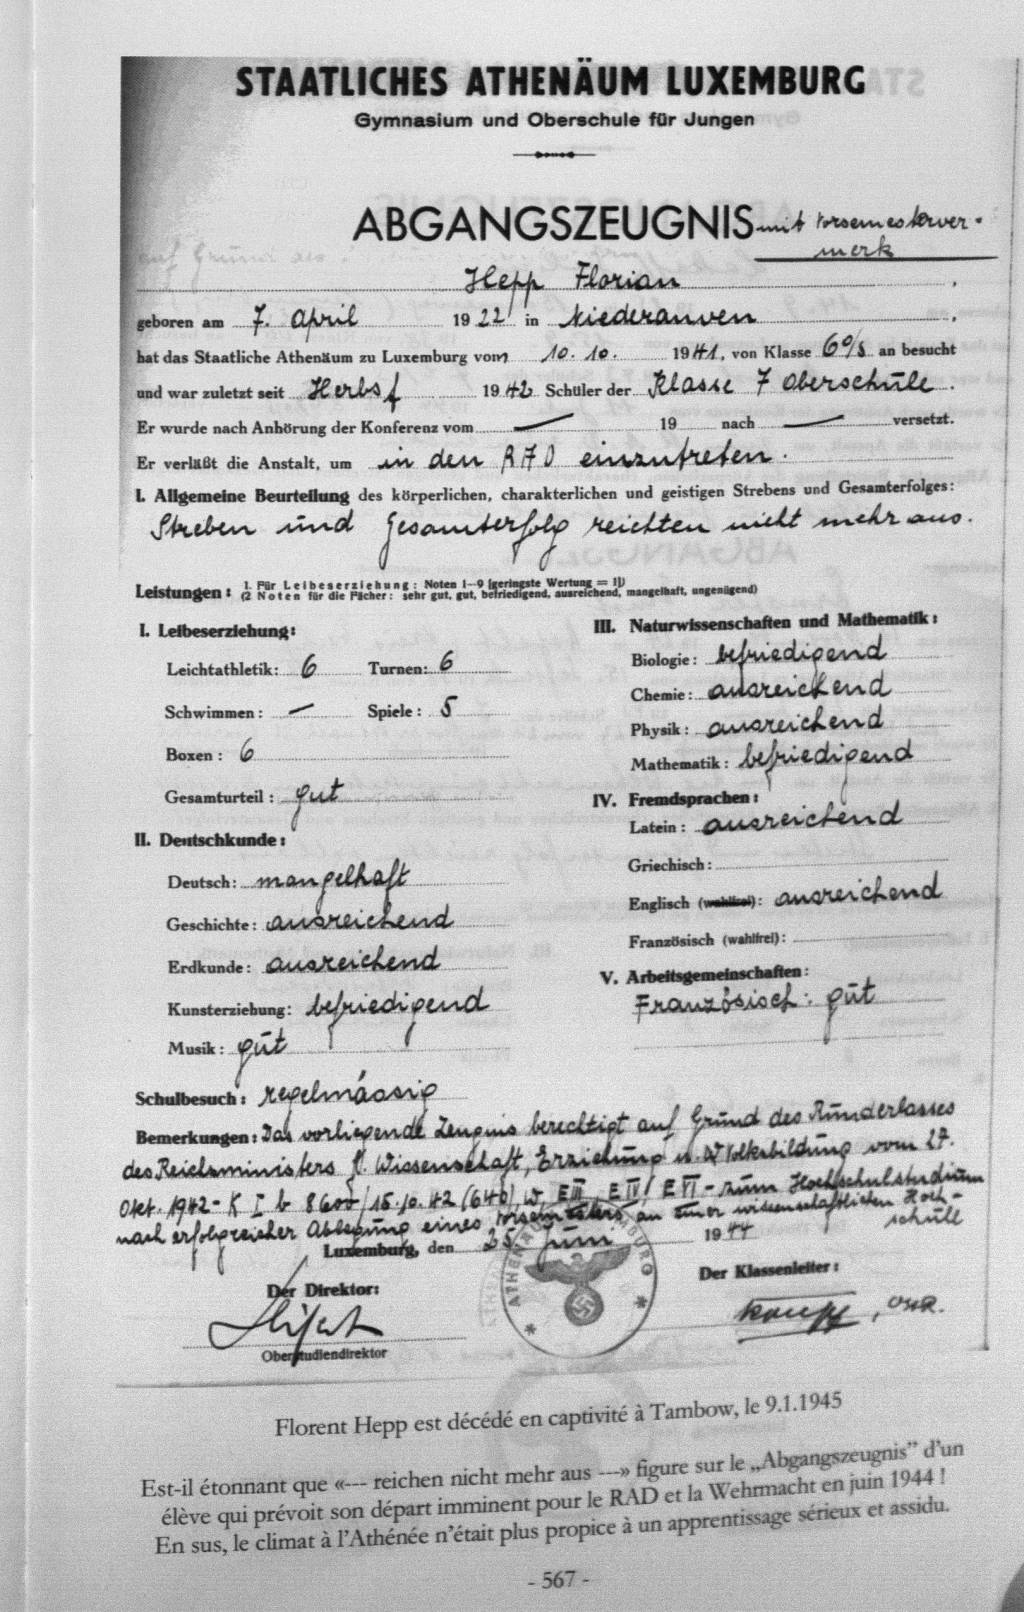 STAATLICHES ATHENÄUM LUXEMBURG
Gymnasium und Oberschule für Jungen
ABGANGSZEUGNIS mit Vorsemesterver-
merk
Hepp Florian,
geboren am 7. April 1922 in Niederanven,
hat das Staatliche Athenäum zu Luxemburg vom 10. 10. 1941, von Klasse 6 an besucht
und war zuletzt seit Herbst 1942 Schüler der Klasse 7 Oberschule.
Er wurde nach Anhörung der Konferenz vom — 19 nach — versetzt.
Er verläßt die Anstalt, um in den RAD einzutreten.
I. Allgemeine Beurteilung des körperlichen, charakterlichen und geistigen Strebens und Gesamterfolges:
Streben und Gesamterfolg reichten nicht mehr aus.
Leistungen: 1. Für Leibeserziehung: Noten 1—9 (geringste Wertung = 1))
(2 Noten für die Fächer: sehr gut, gut, befriedigend, ausreichend, mangelhaft, ungenügend)
I. Leibeserziehung:
Leichtathletik: 6 Turnen: 6
Schwimmen: — Spiele: 5
Boxen: 6
Gesamturteil: gut
II. Deutschkunde:
Deutsch: mangelhaft
Geschichte: ausreichend
Erdkunde: ausreichend
Kunsterziehung: befriedigend
Musik: gut
III. Naturwissenschaften und Mathematik:
Biologie: befriedigend
Chemie: ausreichend
Physik: ausreichend
Mathematik: befriedigend
IV. Fremdsprachen:
Latein: ausreichend
Griechisch:
Englisch (wahlfrei): ausreichend
Französisch (wahlfrei):
V. Arbeitsgemeinschaften:
Französisch: gut
Schulbesuch: regelmässig
Bemerkungen: Das vorliegende Zeugnis berechtigt auf Grund des Runderlasses
des Reichsministers f. Wissenschaft, Erziehung u. Volksbildung vom 27.
Okt. 1942 - K I b 8600/15.10.42 (640) W, E III, E IV, E VI - zum Hochschulstudium
nach erfolgreicher Ablegung eines Vorsemesters an einer wissenschaftlichen Hoch-
schule
Luxemburg, den 25 Juni 1944
Der Direktor:
Oberstudiendirektor
Der Klassenleiter:
, OStR.
Florent Hepp est décédé en captivité à Tambow, le 9.1.1945
Est-il étonnant que «--- reichen nicht mehr aus ---» figure sur le „Abgangszeugnis” d’un
élève qui prévoit son départ imminent pour le RAD et la Wehrmacht en juin 1944 !
En sus, le climat à l’Athénée n’était plus propice à un apprentissage sérieux et assidu.
- 567 -